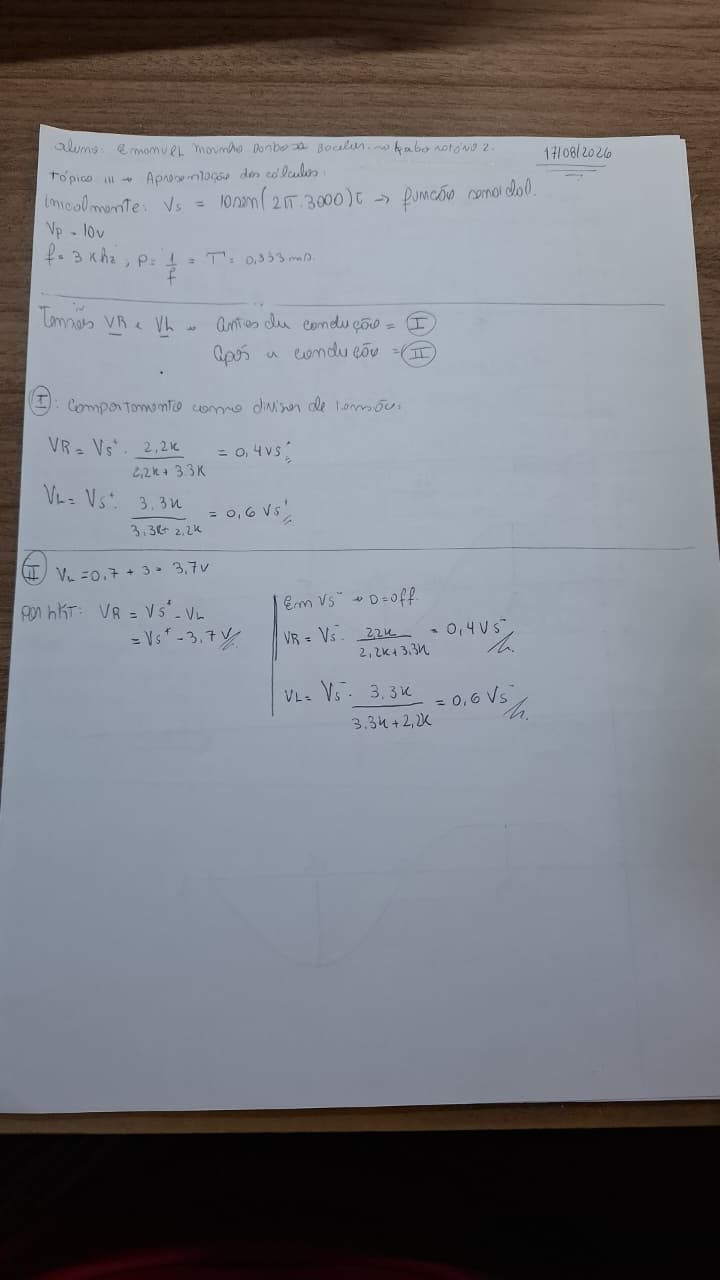 aluno: Emanuel Marinho Barbosa Laboratório 2. 17/08/2026
Tópico III → Apresentação dos cálculos:
Inicalmente: Vs = 10sen(2π.3000)t → função senoidal.
Vp = 10v
f = 3 Khz, P = 1/f = T = 0,333 ms.
Tensões VR e VL → Antes da condução = I
Após a condução = II
I : Comportamento como divisor de tensão:
VR = Vs⁺ . 2,2K / 2,2K + 3.3K = 0,4Vs⁺
VL = Vs⁺ . 3.3K / 3.3K + 2,2K = 0,6 Vs⁺
II VL = 0,7 + 3 = 3,7V
Por LKT: VR = Vs⁺ - VL
= Vs⁺ - 3,7 V
Em Vs⁻ → D = off.
VR = Vs⁻ . 2,2K / 2,2K + 3.3K = 0,4 Vs⁻
VL = Vs⁻ . 3.3K / 3.3K + 2,2K = 0,6 Vs⁻